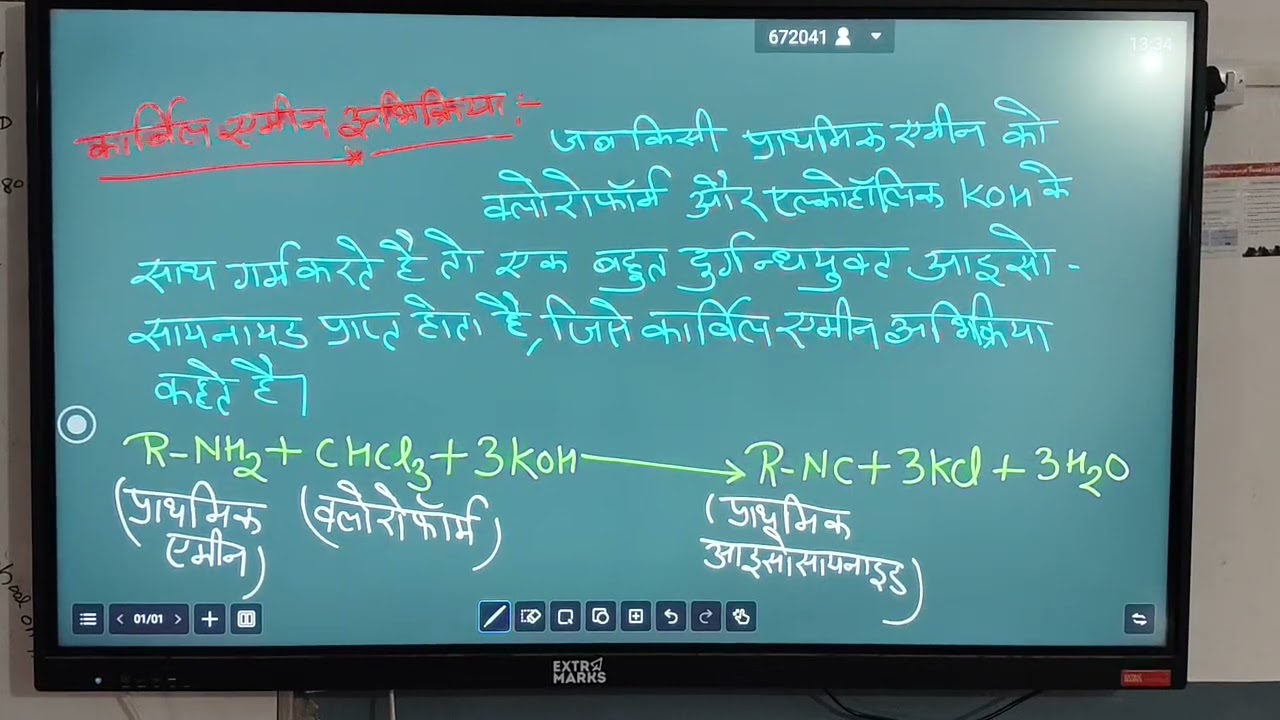 672041
13:34
कार्बिल एमीन अभिक्रिया :-
जब किसी प्राथमिक एमीन को
क्लोरोफॉर्म और एल्कोहॉलिक KOH के
साथ गर्म करते है तो एक बहुत दुर्गन्धयुक्त आइसो -
सायनायड प्राप्त होता है, जिसे कार्बिल एमीन अभिक्रिया
कहते है।
R-NH₂ + CHCl₃ + 3KOH ⟶ R-NC + 3KCl + 3H₂O
(प्राथमिक एमीन) (क्लोरोफॉर्म) (प्राथमिक आइसोसायनाइड)
01/01
EXTRA MARKS